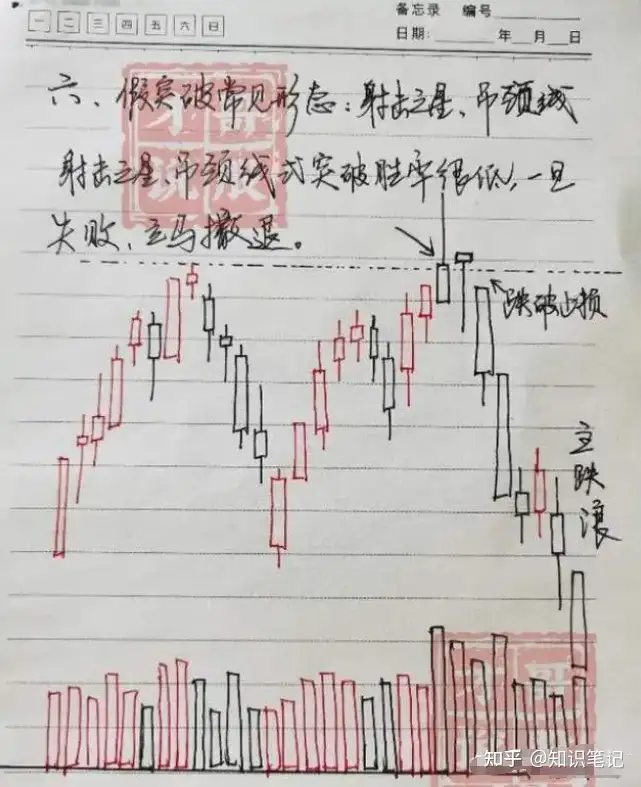 备忘录 编号
一 二 三 四 五 六 日
日期: 年 月 日
六、假突破常见形态:射击之星、吊颈线
射击之星、吊颈线式突破胜率很低,一旦
失败,立马撤退。
跌破止损
主跌浪
知乎 @知识笔记